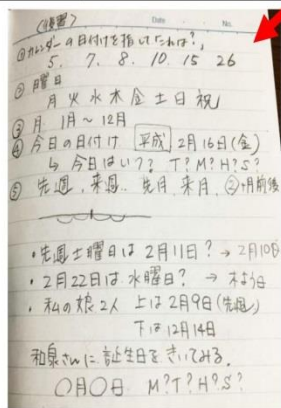 (復習)
Date No.
① カレンダーの日付けを指してこれは?」
5. 7. 8. 10. 15 26
② 曜日
月 火 水 木 金 土 日 祝
③ 月 1月〜12月
④ 今日の日付け 平成 2月16日(金)
↳ 今日はいつ? T? M? H? S?
⑤ 先週、来週、先月、来月、②ヶ月前後
・先週土曜日は2月11日? → 2月10日
・2月22日は水曜日? → 木よう日
・私の娘2人 上は2月9日(先週)
下は12月14日
和泉さんに誕生日をきいてみる。
〇月〇日 M? T? H? S?